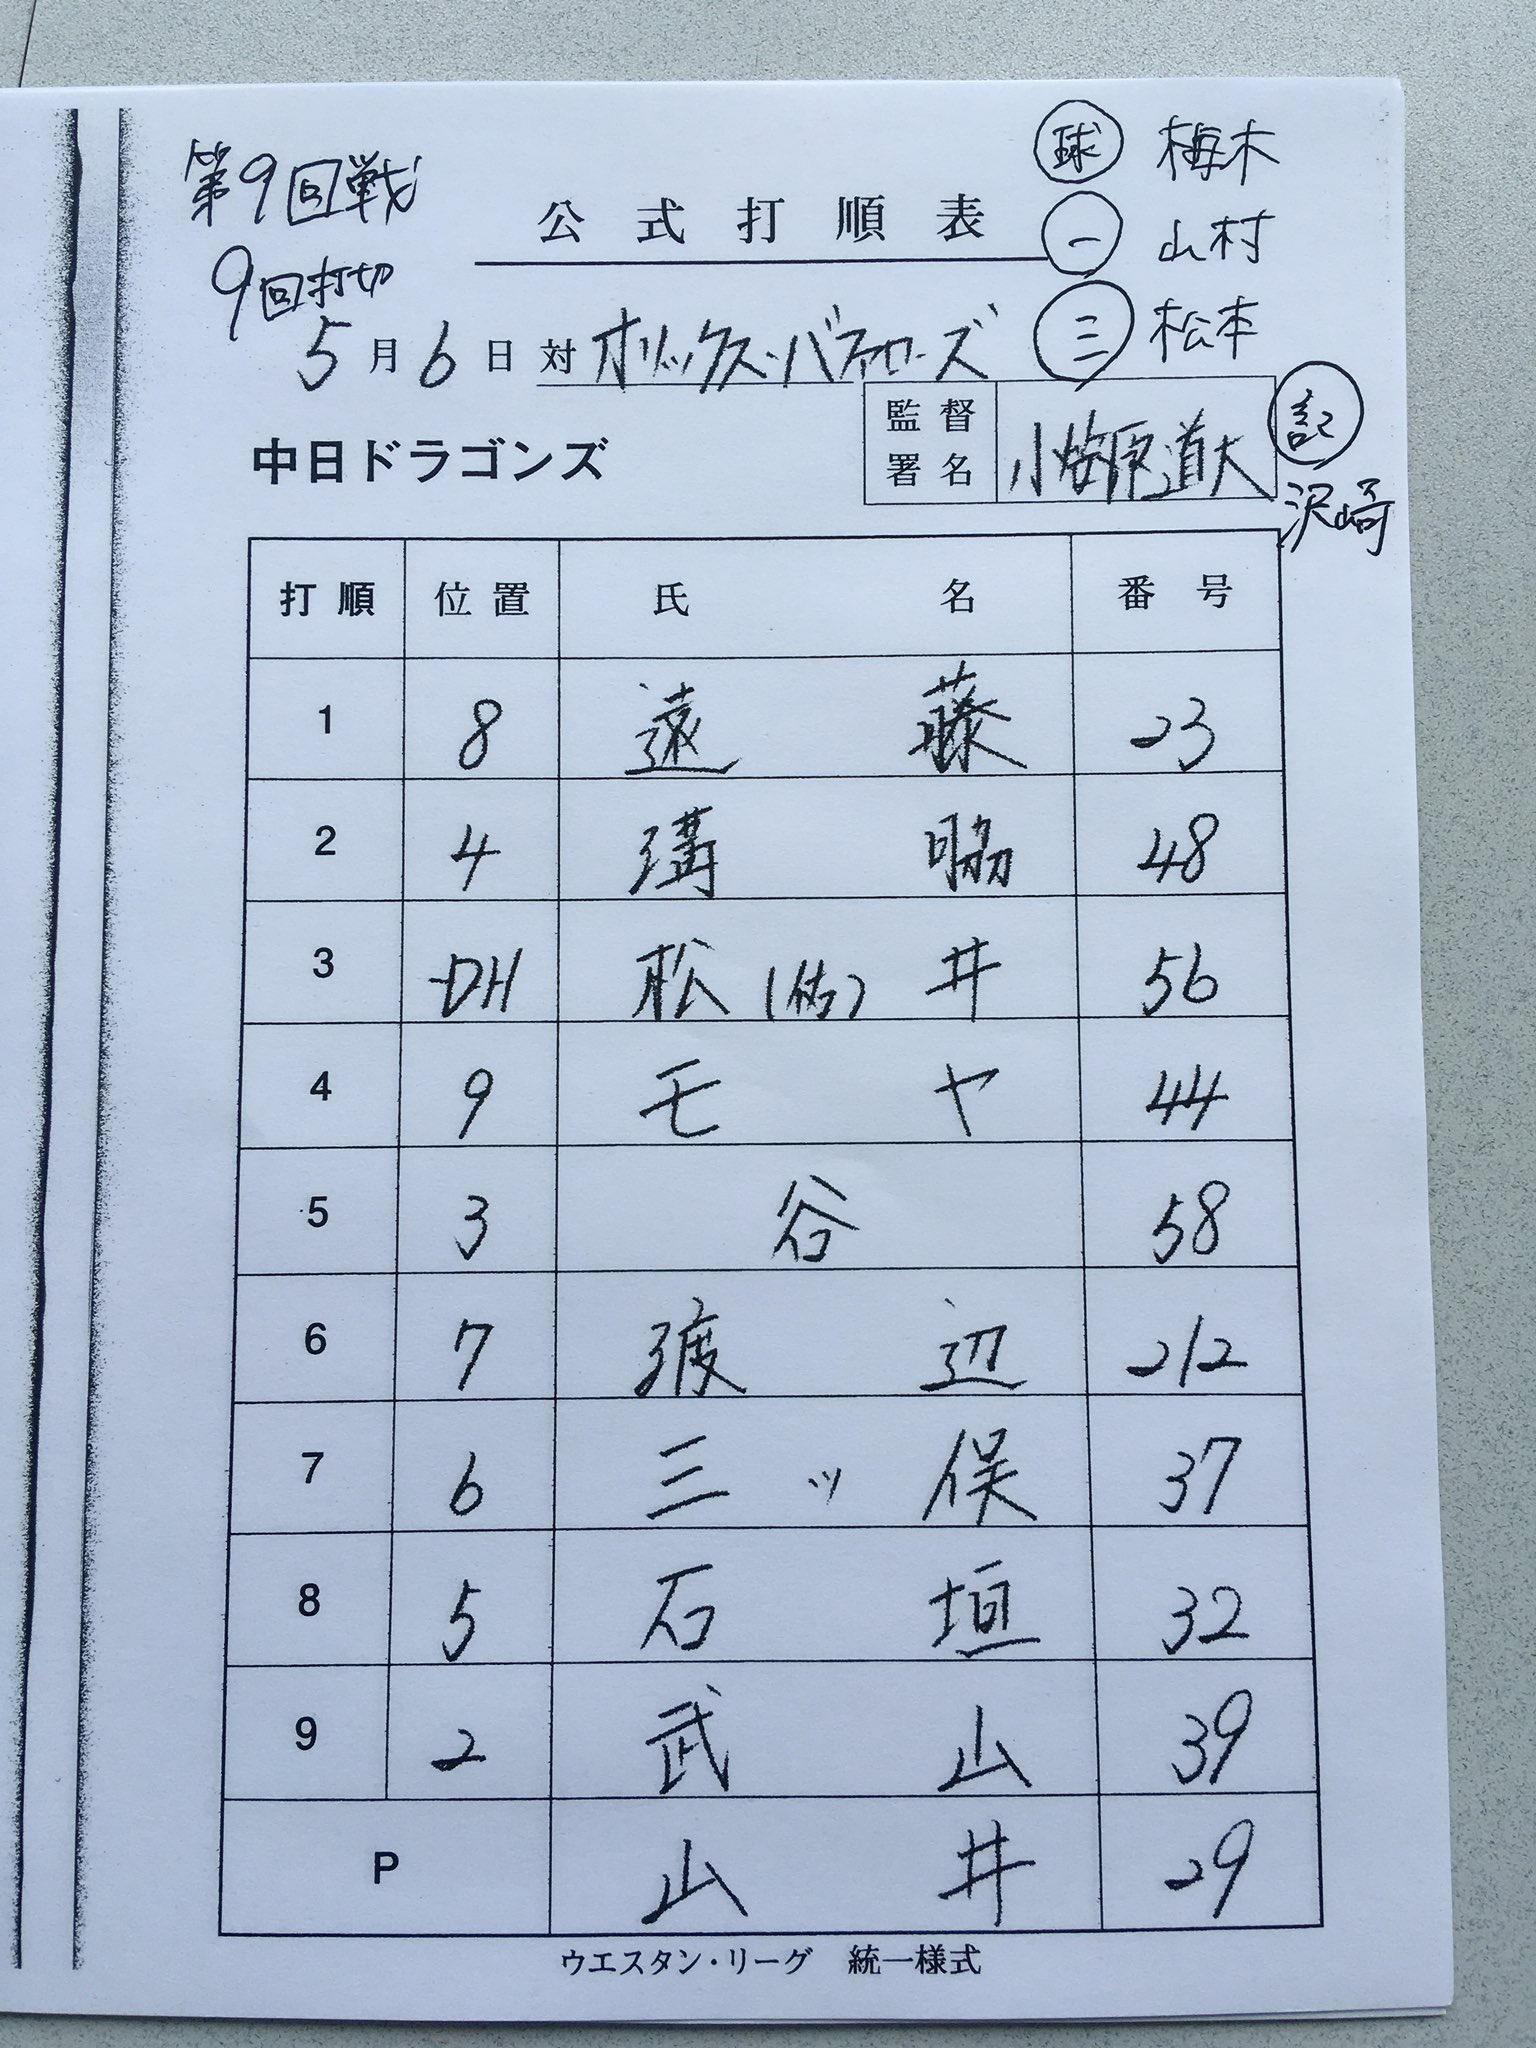 第9回戦
9回打切
公式打順表
球 梅木
一 山村
三 松本
5月6日 対 オリックス・バファローズ
中日ドラゴンズ
監督署名 小笠原道大
記
沢崎
打順 位置 氏名 番号
1 8 遠藤 23
2 4 溝脇 48
3 DH 松(佑)井 56
4 9 モヤ 44
5 3 谷 58
6 7 渡辺 212
7 6 三ッ俣 37
8 5 石垣 32
9 2 武山 39
P 山井 29
ウエスタン・リーグ 統一様式